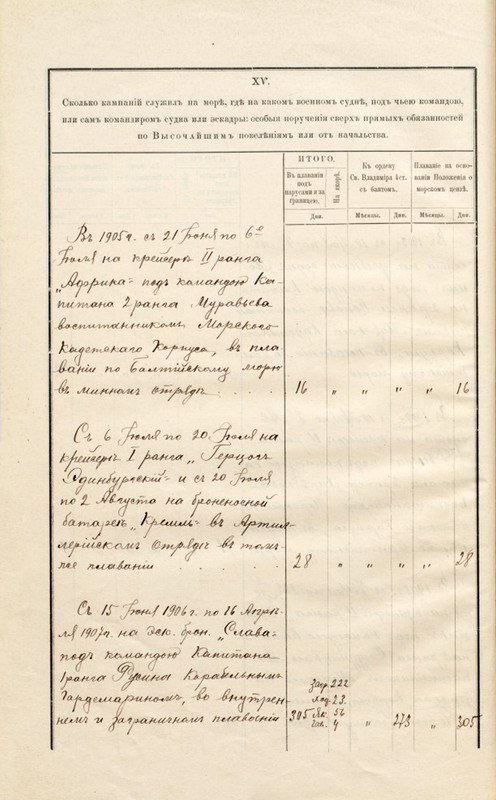 XV.
Сколько кампаній служилъ на морѣ, гдѣ на какомъ военномъ суднѣ, подъ чьею командою,
или самъ командиромъ судна или эскадры: особыя порученія сверхъ прямыхъ обязанностей
по Высочайшимъ повелѣніямъ или отъ начальства.
ИТОГО.
Въ плаваніи
подъ
парусами и за
границею.
На якорѣ.
Къ ордену
Св. Владиміра 4 ст.
съ бантомъ.
Плаваніе на осно-
ваніи Положенія о
морскомъ цензѣ.
Дни.
Мѣсяцы.
Дни.
Мѣсяцы.
Дни.
Въ 1905 г. съ 21 Іюня по 6е
Іюля на крейсерѣ II ранга
„Африка“ подъ командою Ка-
питана 2 ранга Муравьева
воспитанникомъ Морского
Кадетскаго Корпуса, въ пла-
ваніи по Балтійскому морю
въ минномъ отрядѣ . . . . 16 „ „ „ „ 16
Съ 6 Іюля по 20 Іюля на
крейсерѣ I ранга „Герцогъ
Эдинбургскій“ и съ 20 Іюля
по 2 Августа на броненосной
батареѣ „Кремль“ въ Артил-
лерійскомъ отрядѣ въ томъ-
же плаваніи . . . . . 28 „ „ „ „ 28
Съ 15 Іюня 1906 г. по 16 Апрѣ-
ля 1907 г. на эск. брон. „Слава“
подъ командою Капитана
1 ранга Русина Корабельнымъ
Гардемариномъ, во внутрен-
немъ и заграничномъ плаваніи 305
Загр. 222
Ход. 23.
Як. 56
Гав. 4
„ 243 „ 305